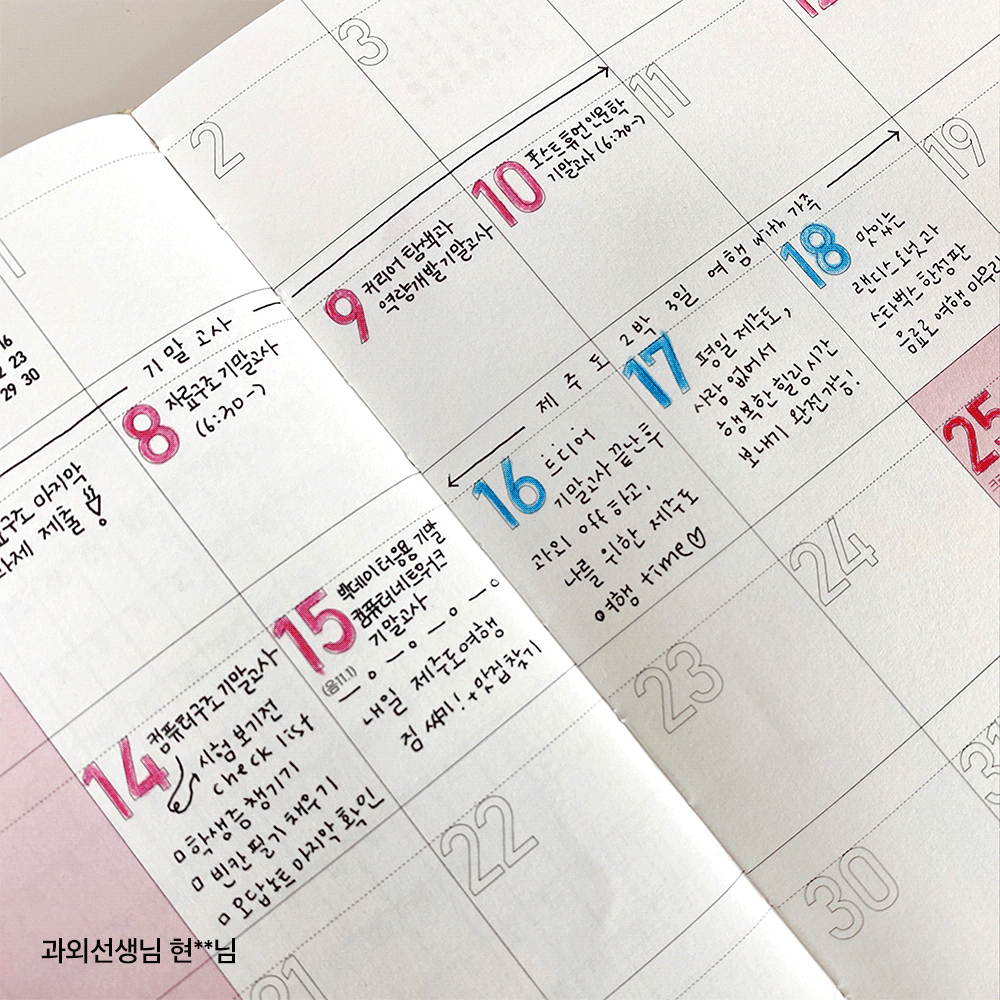 2
3
12
1
16
2 23
29 30
기말고사
8 자료구조 기말고사
(6:20-)
9 커리어 탐색과
역량개발 기말고사
10 포스트휴먼 인문학
기말고사 (6:20-)
11
구조 마지막
과제 제출
제주도 2박 3일 여행 with 가족
14 컴퓨터구조 기말고사
시험 보기전
check list
□ 학생증 챙기기
□ 빈칸 필기 채우기
□ 오답노트 마지막 확인
15 빅데이터응용 기말
컴퓨터네트워크
기말고사
(음11.1)
내일 제주도여행
짐 싸기! + 맛집 찾기
16 드디어
기말고사 끝난 후
과외 off 하고,
나를 위한 제주도
여행 time♡
17 평일 제주도,
사람 없어서
행복한 힐링 시간
보내기 완전 가능!
18 맛있는
랜디스도넛과
스타벅스 한정판
음료로 여행 마무리
19
21
22
23
24
25
30
31
과외선생님 현**님